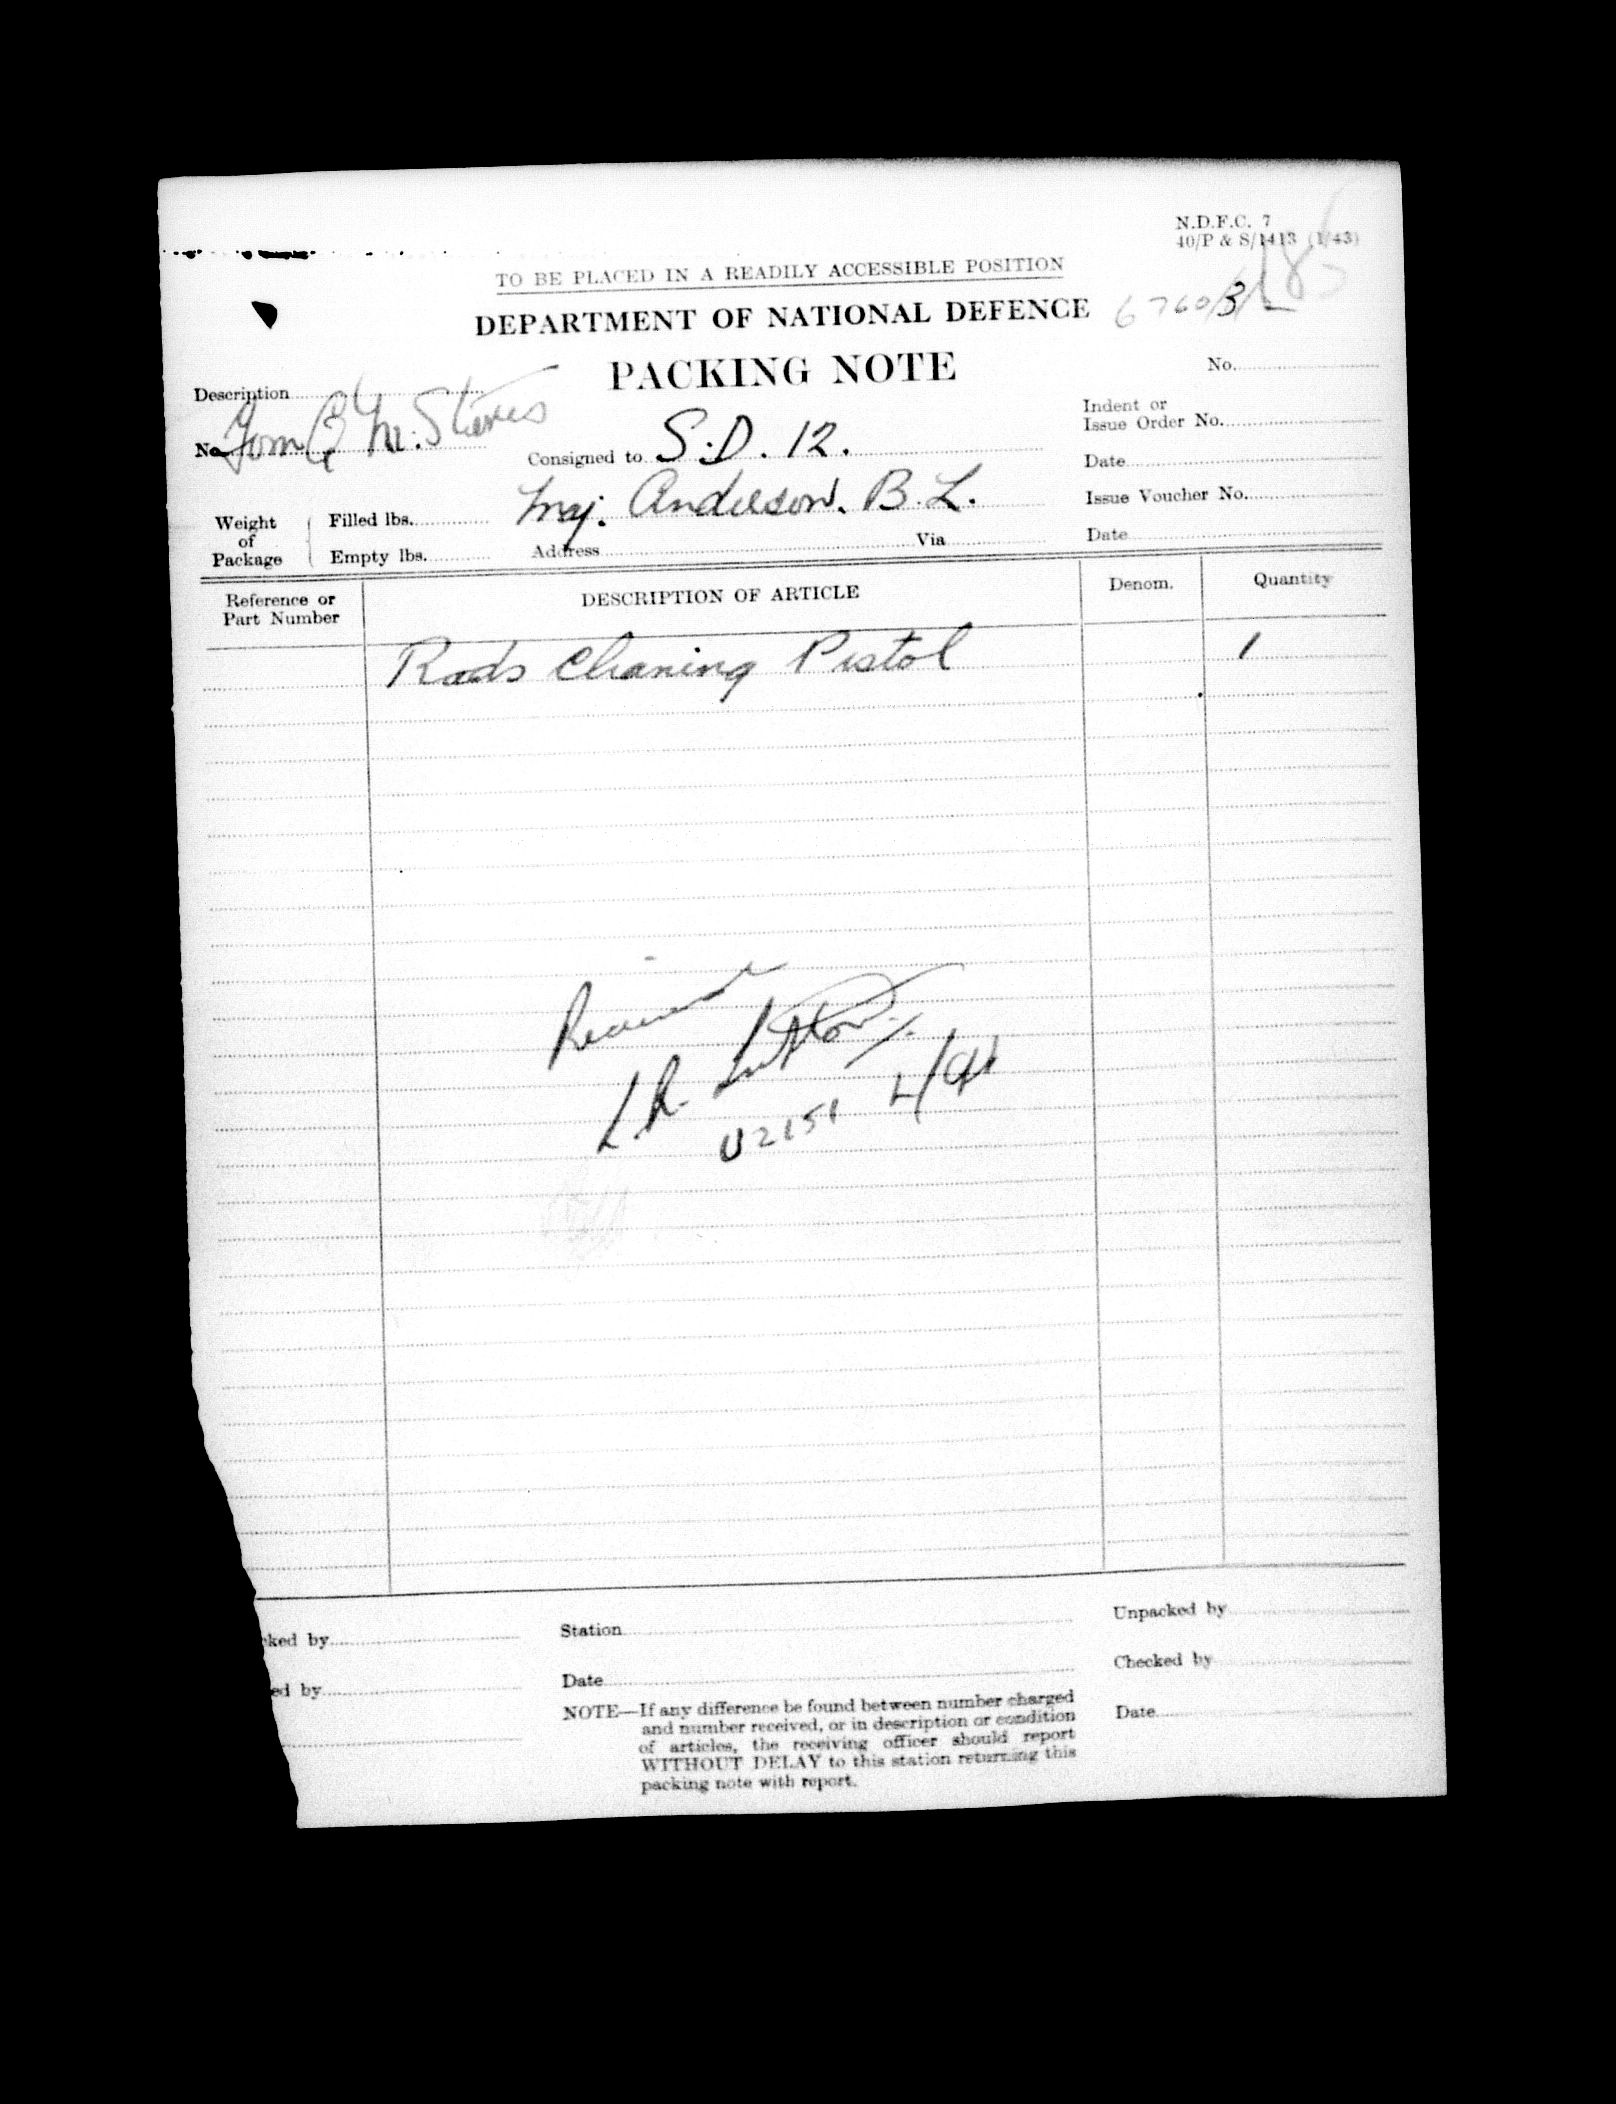 N.D.F.C. 7
40/P & S/1413 (1/43)
TO BE PLACED IN A READILY ACCESSIBLE POSITION
DEPARTMENT OF NATIONAL DEFENCE
6760/3/
PACKING NOTE
No.
Description
No.
Consigned to S.D. 12.
Maj. Anderson. B.L.
Indent or
Issue Order No.
Date
Issue Voucher No.
Date
Weight
of
Package
Filled lbs.
Empty lbs.
Address Via
Reference or
Part Number
DESCRIPTION OF ARTICLE
Denom.
Quantity
Rods Cleaning Pistol 1
Received
U2151
cked by
ed by
Station
Date
NOTE—If any difference be found between number charged
and number received, or in description or condition
of articles, the receiving officer should report
WITHOUT DELAY to this station returning this
packing note with report.
Unpacked by
Checked by
Date